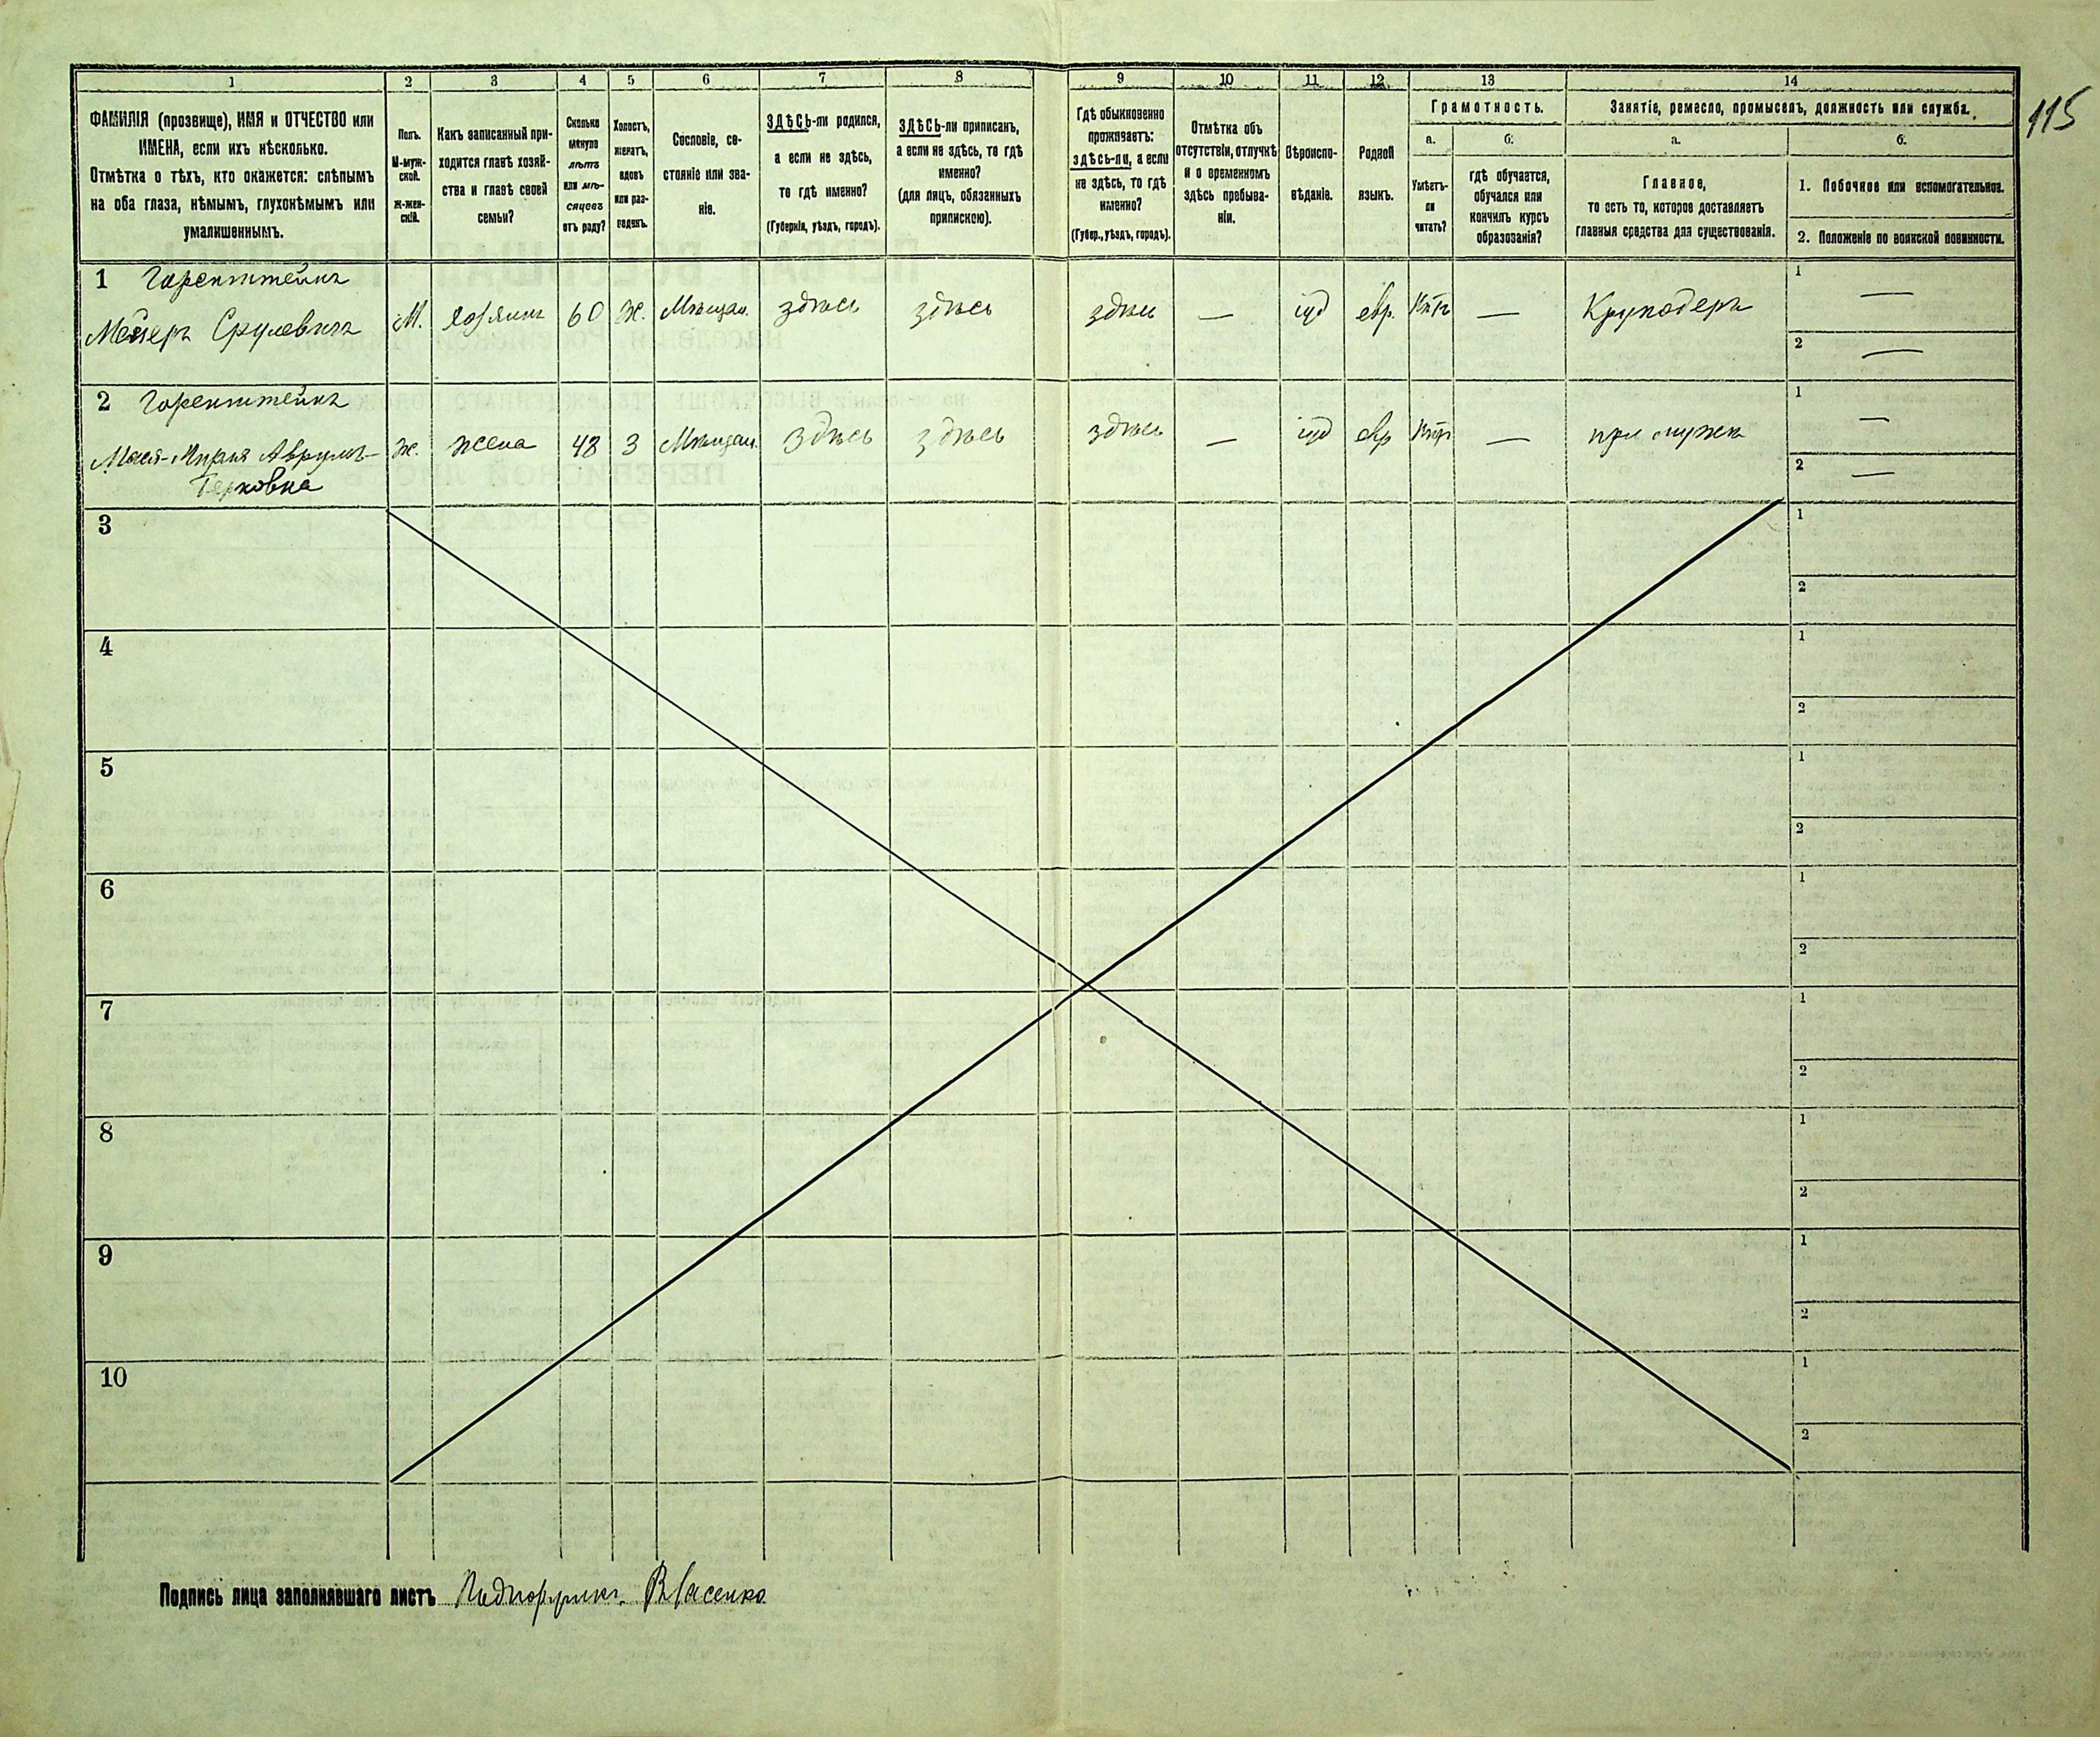 115
1 2 3 4 5 6 7 8 9 10 11 12 13 14
ФАМИЛІЯ (прозвище), ИМЯ и ОТЧЕСТВО или
ИМЕНА, если ихъ нѣсколько.
Отмѣтка о тѣхъ, кто окажется: слѣпымъ
на оба глаза, нѣмымъ, глухонѣмымъ или
умалишеннымъ.
Полъ.
М-муж-
ской.
ж-жен-
скій.
Какъ записанный при-
ходится главѣ хозяй-
ства и главѣ своей
семьи?
Сколько
минуло
лѣтъ
или мѣ-
сяцевъ
отъ роду?
Холостъ,
женатъ,
вдовъ
или раз-
веденъ.
Сословіе, со-
стояніе или зва-
ніе.
ЗДѢСЬ-ли родился,
а если не здѣсь,
то гдѣ именно?
(Губернія, уѣздъ, городъ).
ЗДѢСЬ-ли приписанъ,
а если не здѣсь, то гдѣ
именно?
(для лицъ, обязанныхъ
припискою).
Гдѣ обыкновенно
проживаетъ:
здѣсь-ли, а если
не здѣсь, то гдѣ
именно?
(Губер., уѣздъ, городъ).
Отмѣтка объ
отсутствіи, отлучкѣ
и о временномъ
здѣсь пребыва-
ніи.
Вѣроиспо-
вѣданіе.
Родной
языкъ.
Грамотность.
а.
Умѣетъ-
ли
читать?
б.
гдѣ обучается,
обучался или
кончилъ курсъ
образованія?
Занятіе, ремесло, промыселъ, должность или служба.
а.
Главное,
то есть то, которое доставляетъ
главныя средства для существованія.
б.
1. Побочное или вспомогательное.
2. Положеніе по воинской повинности.
1 Горенштейнъ
Мейеръ Срулевичъ М. хозяинъ 60 Ж. Мѣщан. здѣсь здѣсь здѣсь — іуд евр. — Круподеръ 1 —
2 —
2 Горенштейнъ
Ж. жена 48 З Мѣщан. здѣсь здѣсь здѣсь — іуд евр — при мужѣ 1 —
2 —
3 1
2
4 1
2
5 1
2
6 1
2
7 1
2
8 1
2
9 1
2
10 1
2
Подпись лица заполнявшаго листъ Подпоручикъ Власенко